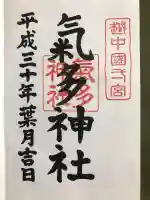 越中國一宮
氣多神社
氣多
神社
平成三十年葉月吉日